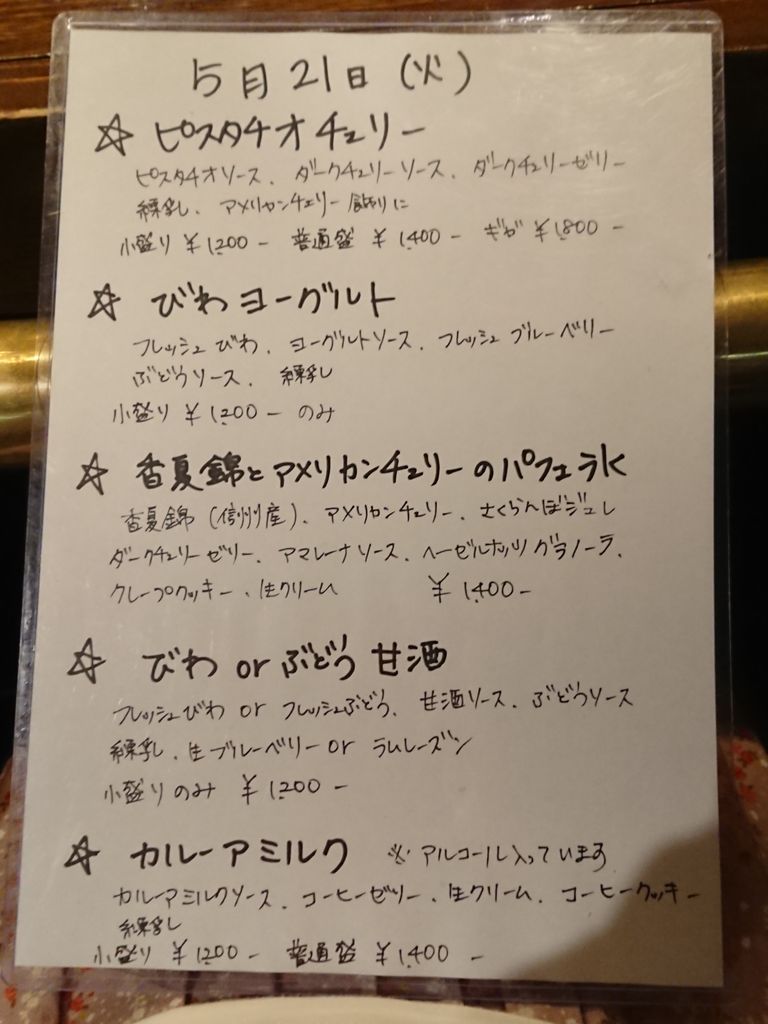 5月21日(火)
☆ ピスタチオチェリー
ピスタチオソース、ダークチェリーソース、ダークチェリーゼリー
練乳、アメリカンチェリー飾りに
小盛り ¥1,200- 普通盛 ¥1,400- ギガ ¥1,800-
☆ びわヨーグルト
フレッシュびわ、ヨーグルトソース、フレッシュブルーベリー
ぶどうソース、練乳
小盛り ¥1,200- のみ
☆ 香夏錦とアメリカンチェリーのパフェ氷
香夏錦(信州産)、アメリカンチェリー、さくらんぼジュレ
ダークチェリーゼリー、アマレーナソース、ヘーゼルナッツグラノーラ、
クレープクッキー、生クリーム ¥1,400-
☆ びわ or ぶどう 甘酒
フレッシュびわ or フレッシュぶどう、甘酒ソース、ぶどうソース
練乳、生ブルーベリー or ラムレーズン
小盛りのみ ¥1,200-
☆ カルーアミルク ※アルコール入っています
カルーアミルクソース、コーヒーゼリー、生クリーム、コーヒークッキー
練乳
小盛り ¥1,200- 普通盛 ¥1,400-